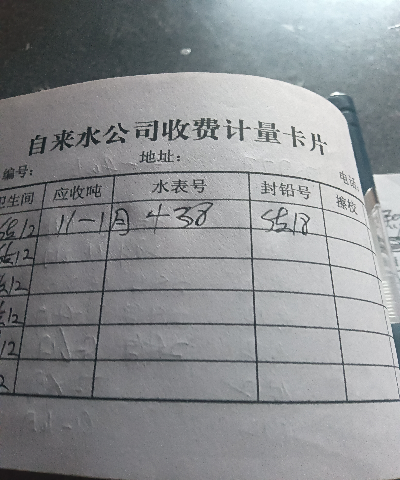 自来水公司收费计量卡片
编号: 地址: 电话:
卫生间 应收吨 水表号 封铅号 擦校
12 11-1月 438 18
12
12
12
12
12